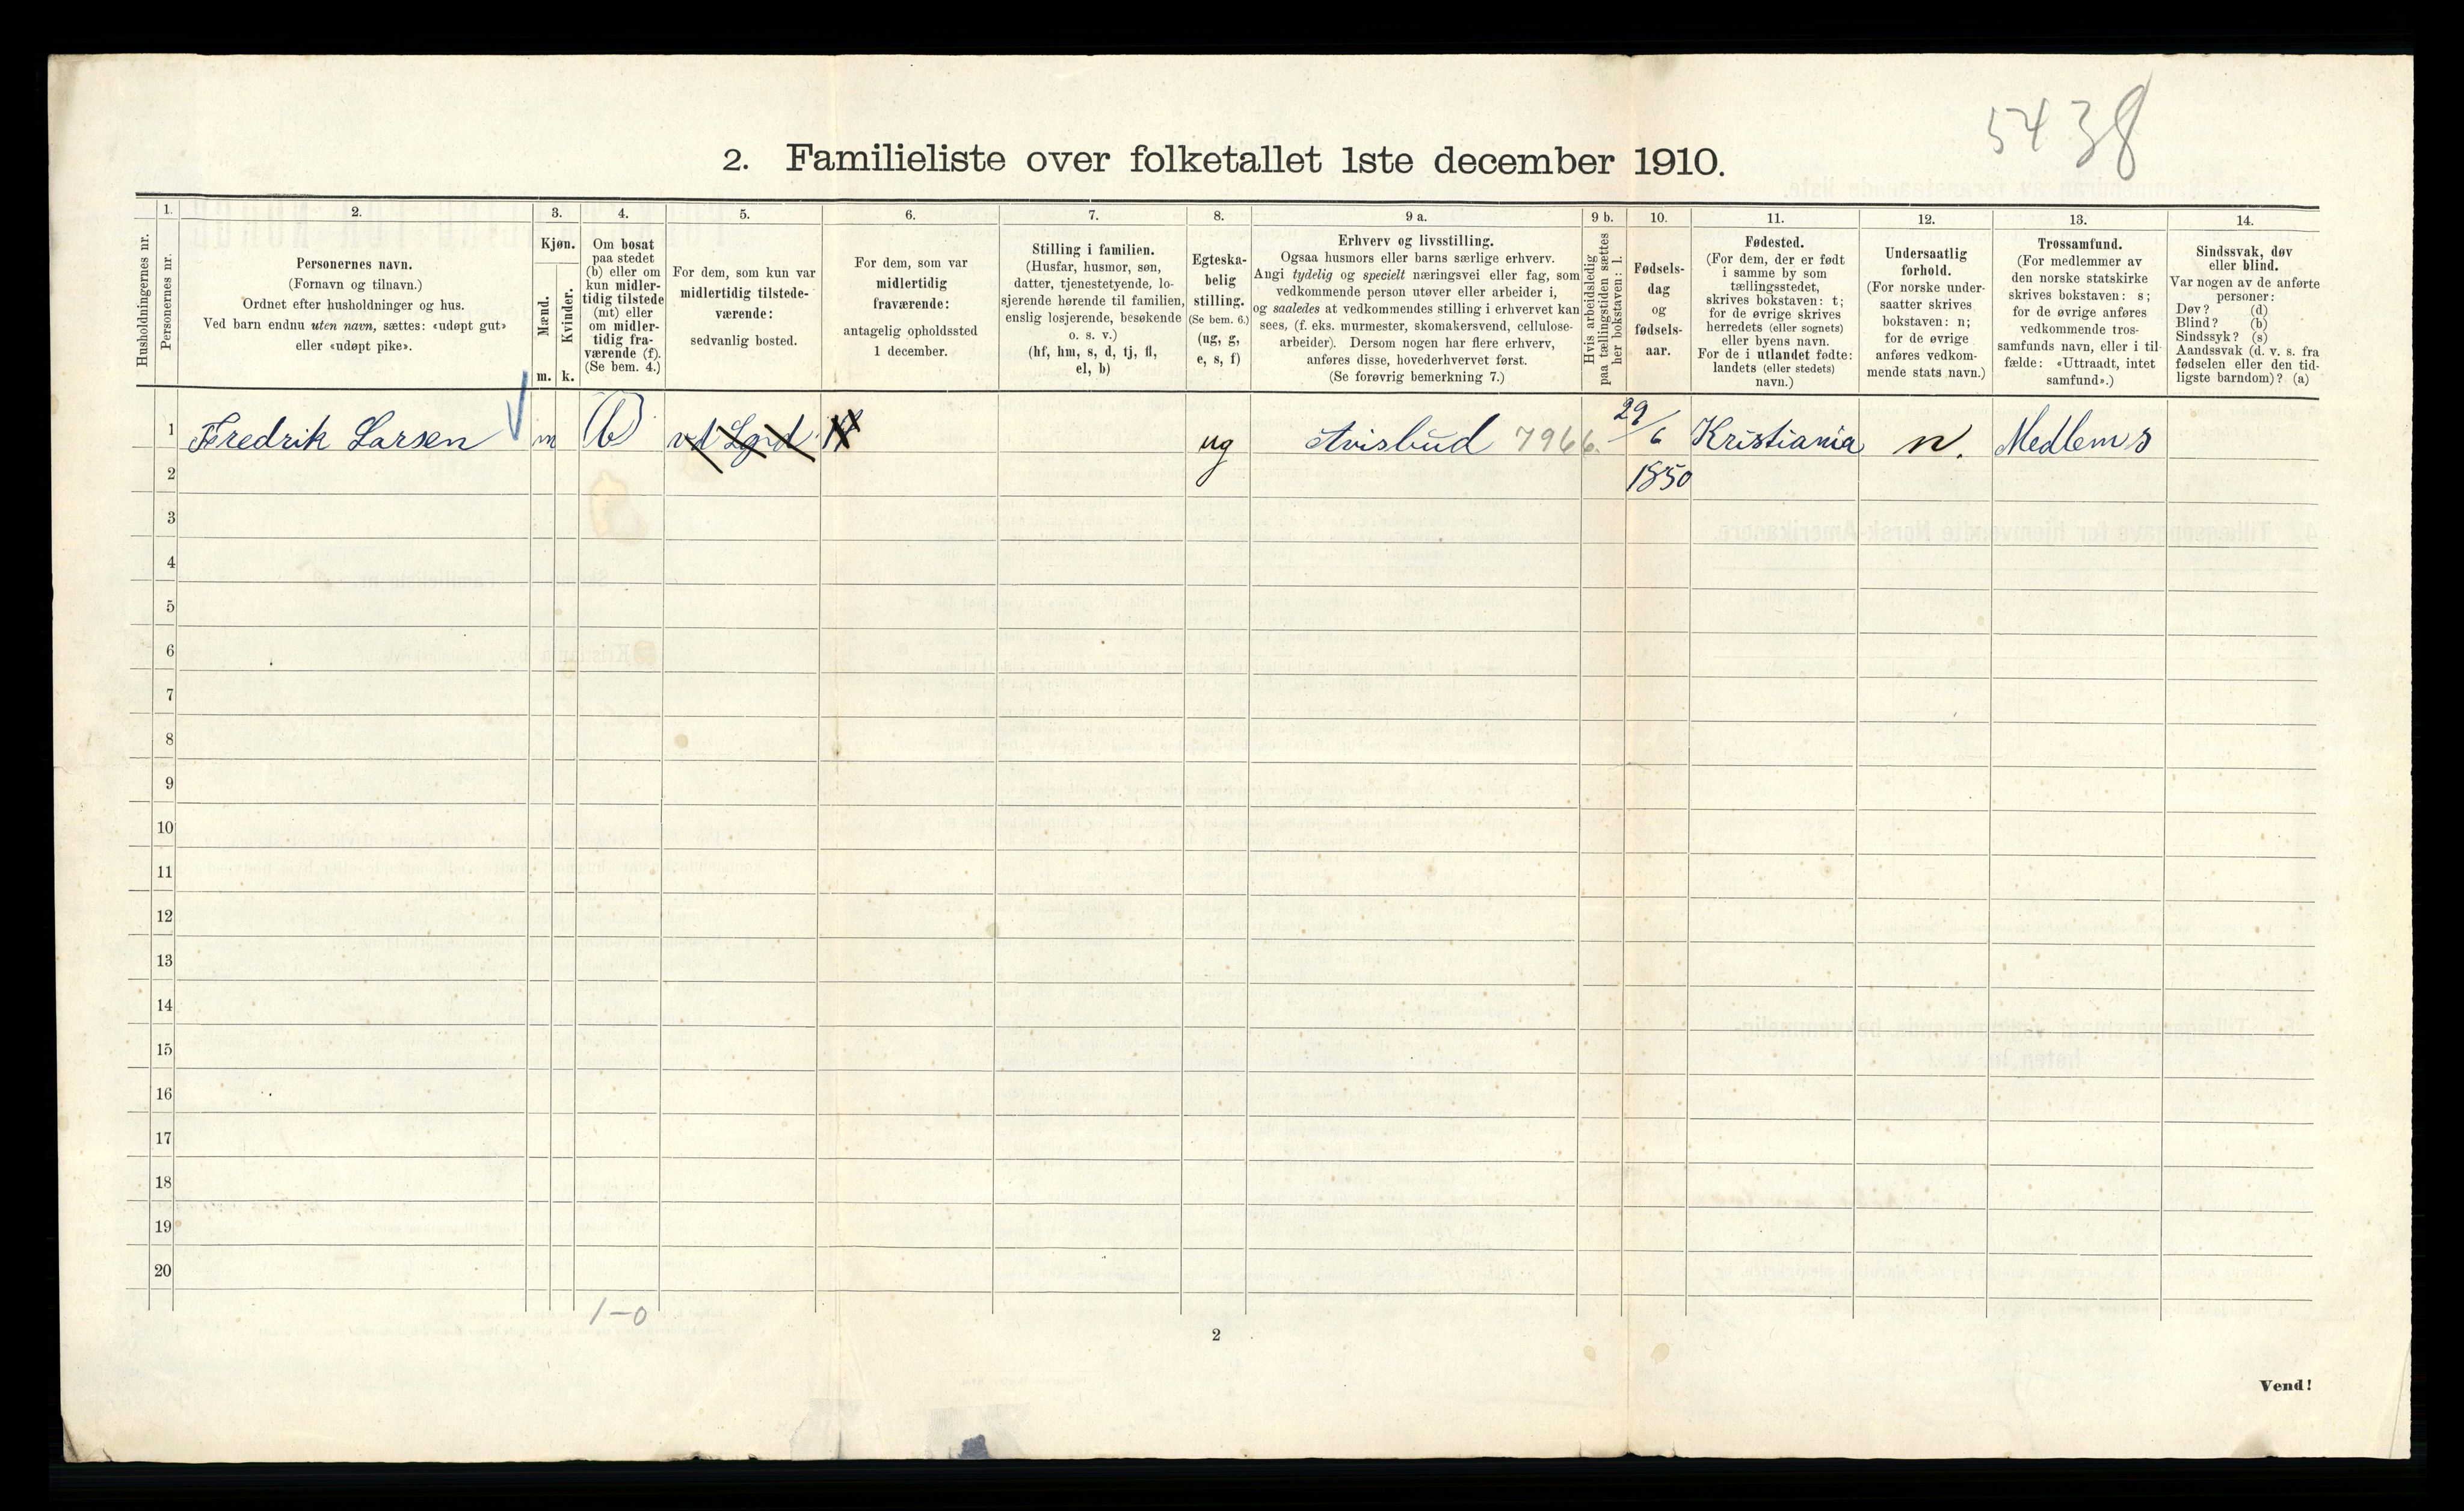 5438
2. Familieliste over folketallet 1ste december 1910.
Husholdningernes nr.
1.
Personernes nr.
2.
Personernes navn.
(Fornavn og tilnavn.)
Ordnet efter husholdninger og hus.
Ved barn endnu uten navn, sættes: «udøpt gut»
eller «udøpt pike».
3.
Kjøn.
Mænd.
Kvinder.
m. k.
4.
Om bosat
paa stedet
(b) eller om
kun midler-
tidig tilstede
(mt) eller
om midler-
tidig fra-
værende (f).
(Se bem. 4.)
5.
For dem, som kun var
midlertidig tilstede-
værende:
sedvanlig bosted.
6.
For dem, som var
midlertidig
fraværende:
antagelig opholdssted
1 december.
7.
Stilling i familien.
(Husfar, husmor, søn,
datter, tjenestetyende, lo-
sjerende hørende til familien,
enslig losjerende, besøkende
o. s. v.)
(hf, hm, s, d, tj, fl,
el, b)
8.
Egteska-
belig
stilling.
(Se bem. 6.)
(ug, g,
e, s, f)
9 a.
Erhverv og livsstilling.
Ogsaa husmors eller barns særlige erhverv.
Angi tydelig og specielt næringsvei eller fag, som
vedkommende person utøver eller arbeider i,
og saaledes at vedkommendes stilling i erhvervet kan
sees, (f. eks. murmester, skomakersvend, cellulose-
arbeider). Dersom nogen har flere erhverv,
anføres disse, hovederhvervet først.
(Se forøvrig bemerkning 7.)
9 b.
Hvis arbeidsledig
paa tællingstiden sættes
her bokstaven: l.
10.
Fødsels-
dag
og
fødsels-
aar.
11.
Fødested.
(For dem, der er født
i samme by som
tællingsstedet,
skrives bokstaven: t;
for de øvrige skrives
herredets (eller sognets)
eller byens navn.
For de i utlandet fødte:
landets (eller stedets)
navn.)
12.
Undersaatlig
forhold.
(For norske under-
saatter skrives
bokstaven: n;
for de øvrige
anføres vedkom-
mende stats navn.)
13.
Trossamfund.
(For medlemmer av
den norske statskirke
skrives bokstaven: s;
for de øvrige anføres
vedkommende tros-
samfunds navn, eller i til-
fælde: «Uttraadt, intet
samfund».)
14.
Sindssvak, døv
eller blind.
Var nogen av de anførte
personer:
Døv? (d)
Blind? (b)
Sindssyk? (s)
Aandssvak (d. v. s. fra
fødselen eller den tid-
ligste barndom)? (a)
1 Fredrik Larsen m (b) ug Avisbud 7966. 29/6 Kristiania n. Medlem s
2 1850
3
4
5
6
7
8
9
10
11
12
13
14
15
16
17
18
19
20
1-0
2
Vend!